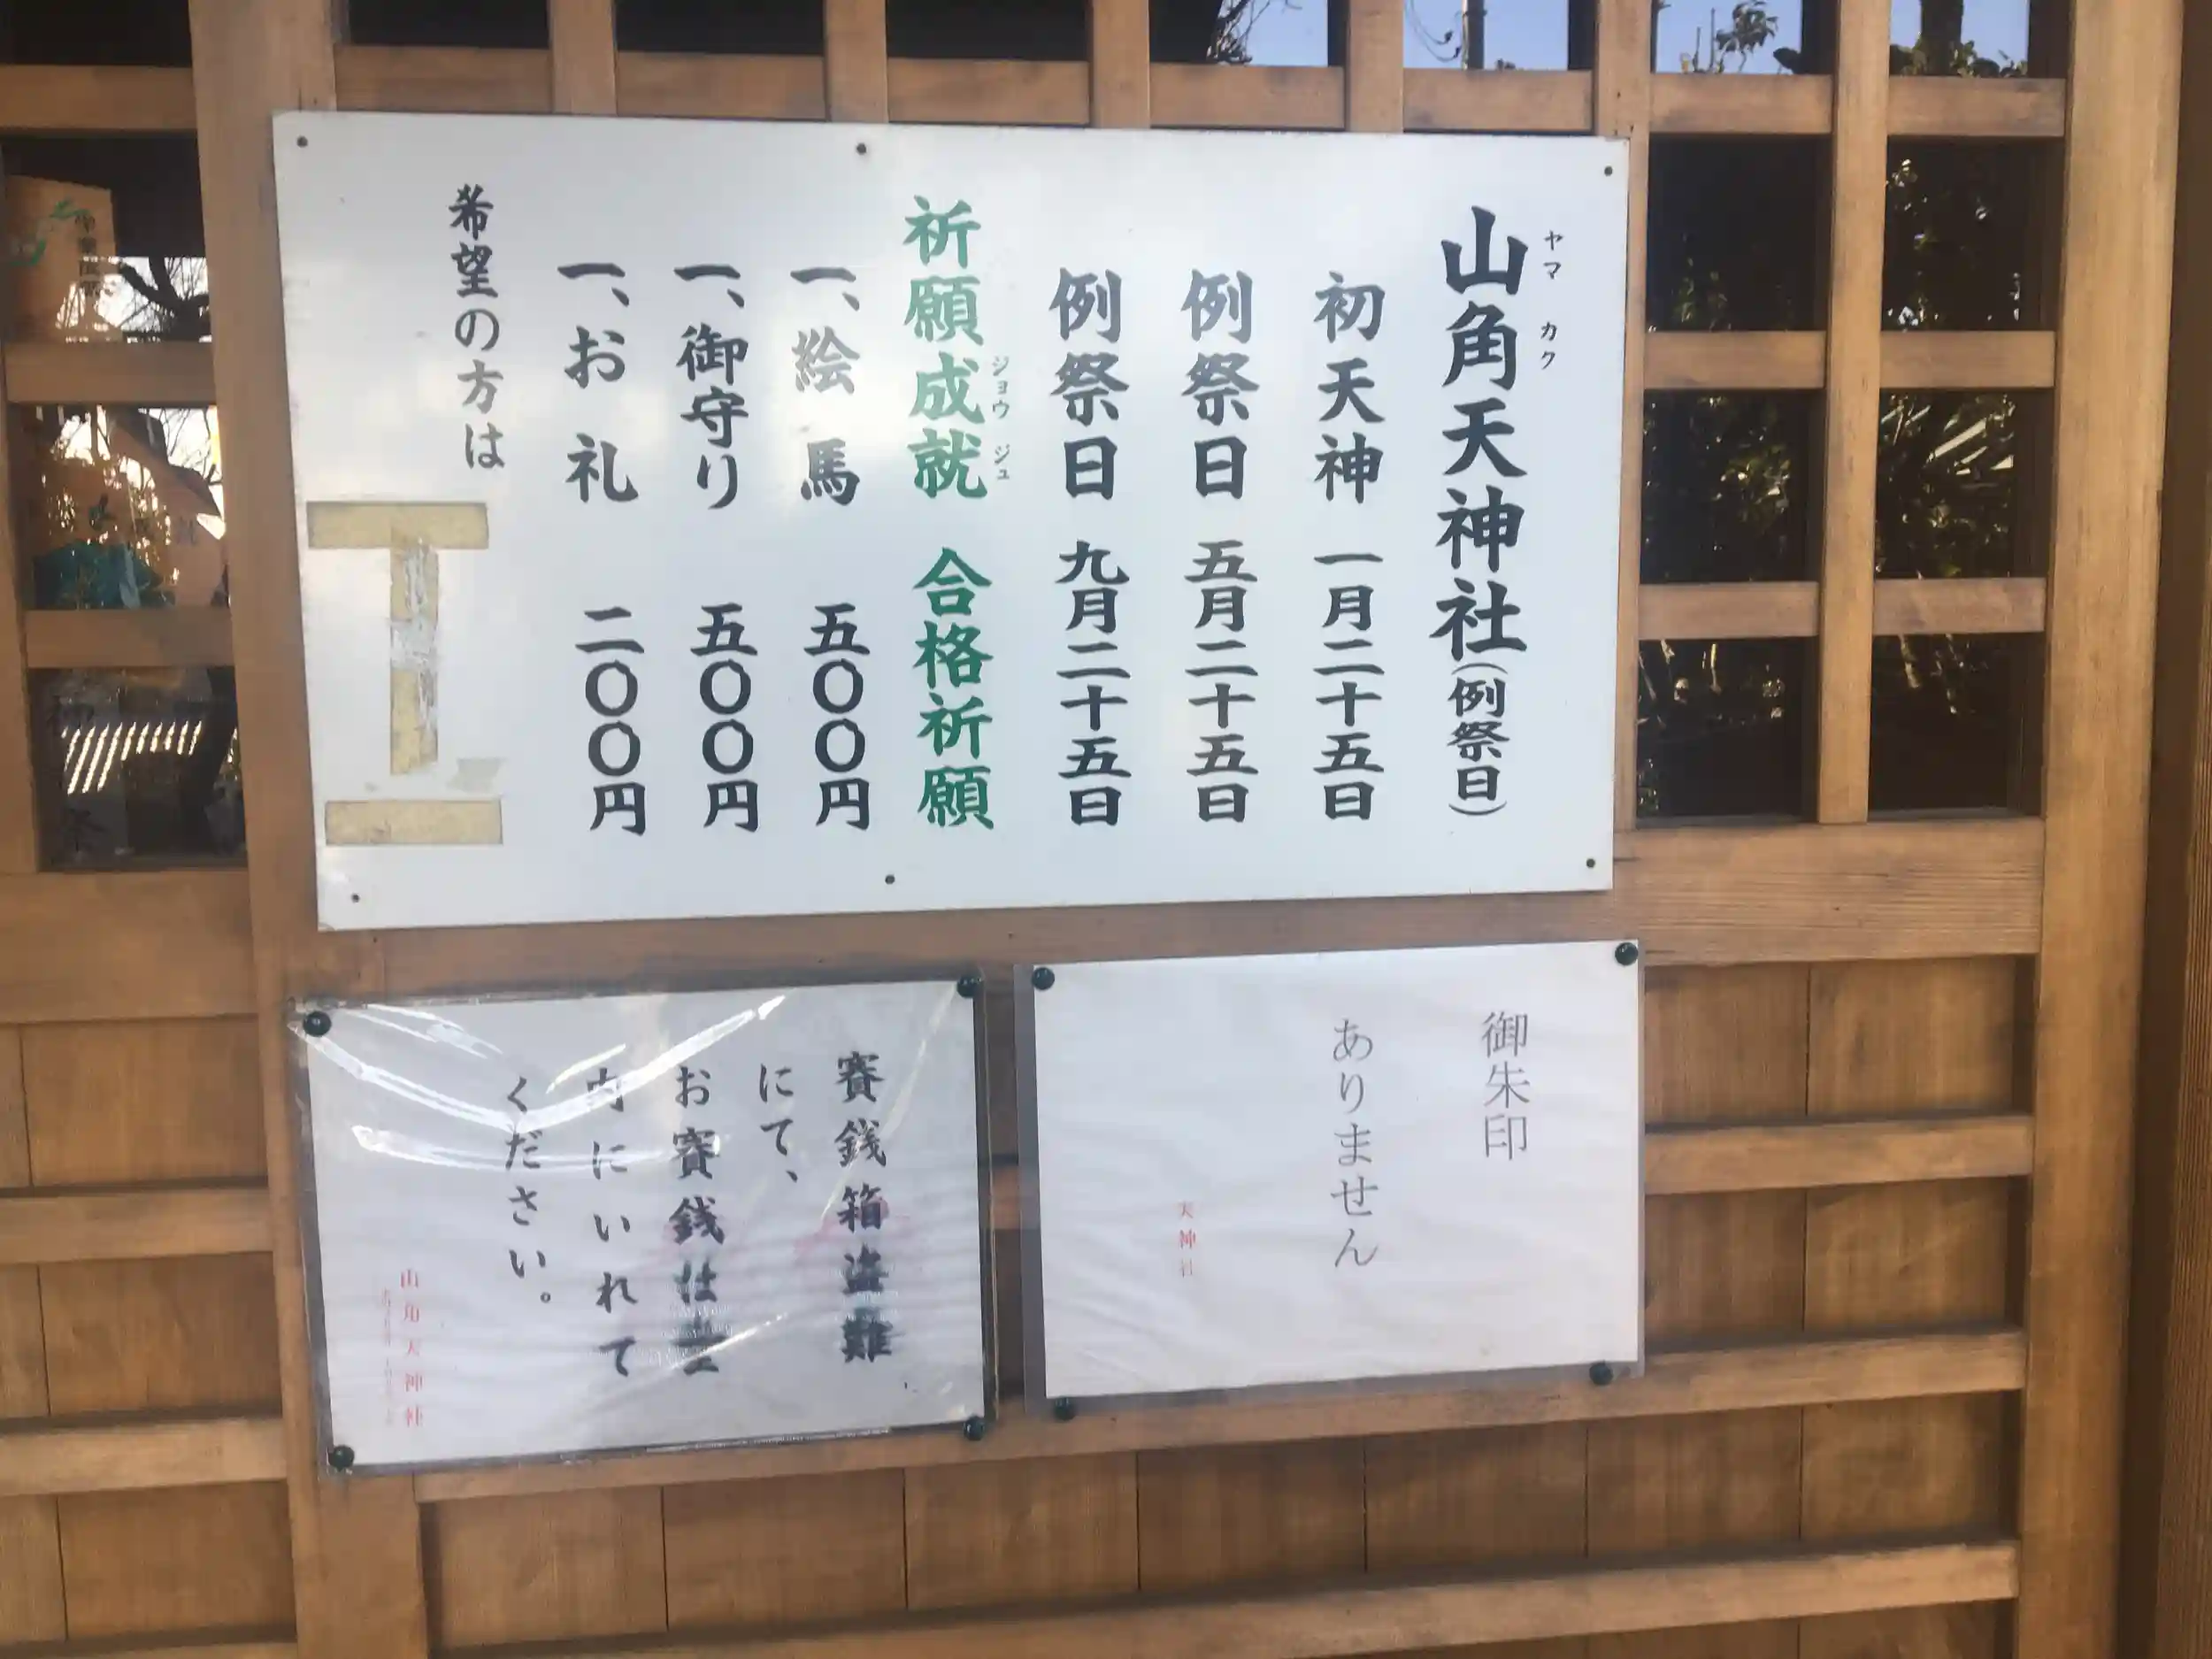 山角天神社(例祭日)
ヤマ カク
初天神 一月二十五日
例祭日 五月二十五日
例祭日 九月二十五日
祈願成就 合格祈願
ジョウ ジュ
一、絵馬 五〇〇円
一、御守り 五〇〇円
一、お札 二〇〇円
希望の方は
御朱印
ありません
天神社
賽銭箱盗難
にて、
お賽銭は
内にいれて
ください。
山角天神社